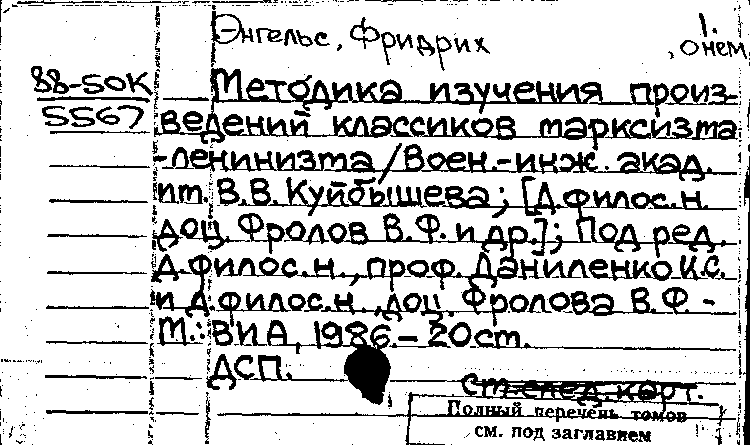 1.
Энгельс, Фридрих , о нем
88-50К
5567
Методика изучения произ-
ведений классиков марксизма
-ленинизма / Воен.-инж. акад.
им. В.В. Куйбышева ; [Д.филос.н.
доц. Фролов В.Ф. и др.]; Под ред.
Д.филос.н., проф. Даниленко И.С.
и Д.филос.н., доц. Фролова В.Ф. -
М.: ВИА, 1986. - 20 ст.
ДСП.
Ст. след. карт.
Полный перечень томов
см. под заглавием